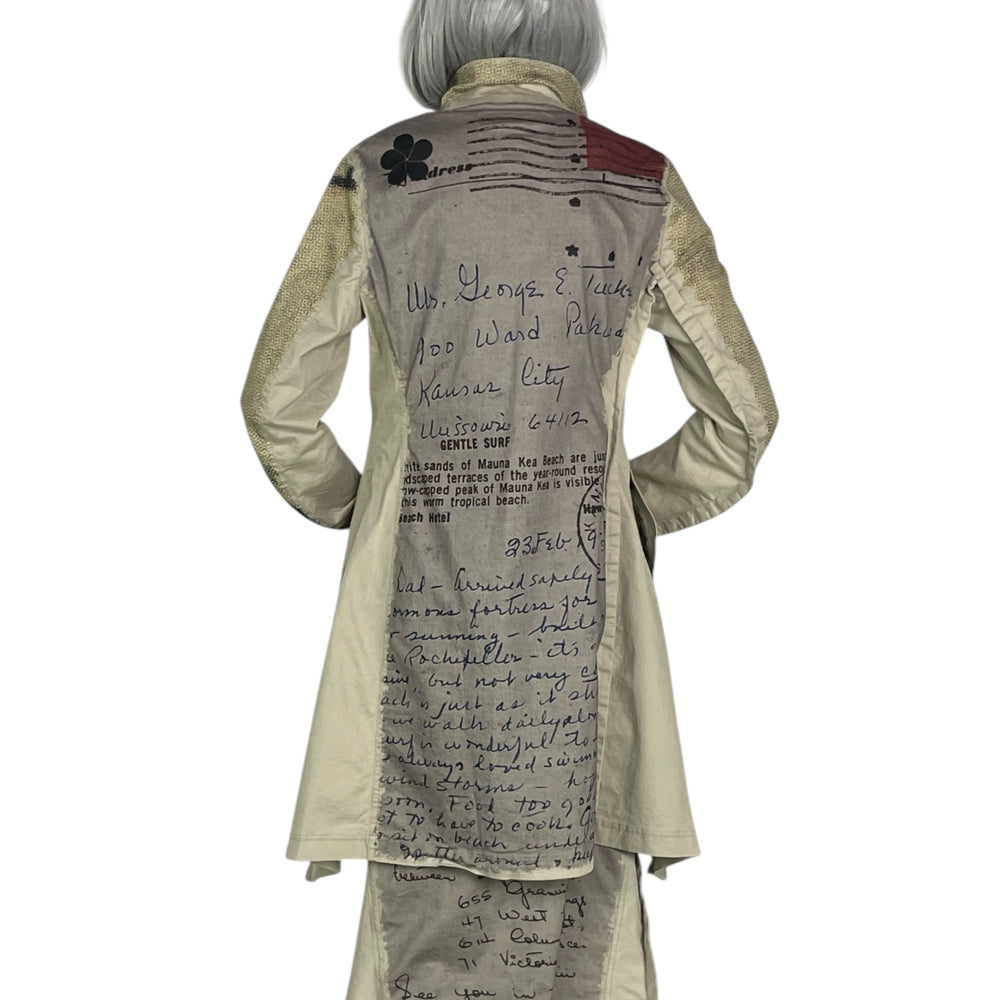 Address
Mr. George E. Tucke
900 Ward Pakwa
Kansas City
Missouri 64112
GENTLE SURF
hite sands of Mauna Kea Beach are jus
ndscaped terraces of the year-round reso
ow-capped peak of Mauna Kea is visible
this warm tropical beach.
Beach Hotel
Haw
23 Feb.
Dad – Arrived safely
ormous fortress for
sunning – built
Rockefeller – it's
sive, but not very
ach is just as it sh
we walk daily alon
urf is wonderful to
always loved swim
wind storms – ho
soon. Food too goo
ot to have to cook.
sit on beach unde
around &
between
655
47 West
614 Colum
71 Victoria
See you in